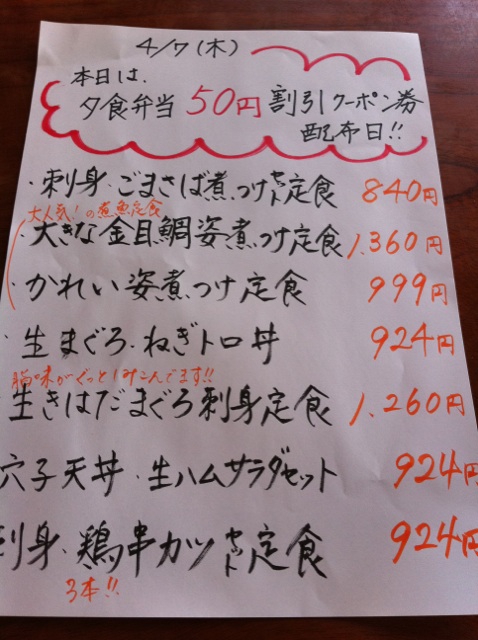 4/7(木)
本日は、
夕食弁当 50円 割引クーポン券
配布日!!
・刺身・ごまさば煮つけセット定食 840円
大人気!の煮魚定食
・大きな金目鯛姿煮つけ定食 1,360円
・かれい姿煮つけ定食 999円
・生まぐろ・ねぎトロ丼 924円
脂味がぐっとしみこんでます!!
生きはだまぐろ刺身定食 1,260円
穴子天丼・生ハムサラダセット 924円
刺身・鶏串カツセット定食 924円
3本!!